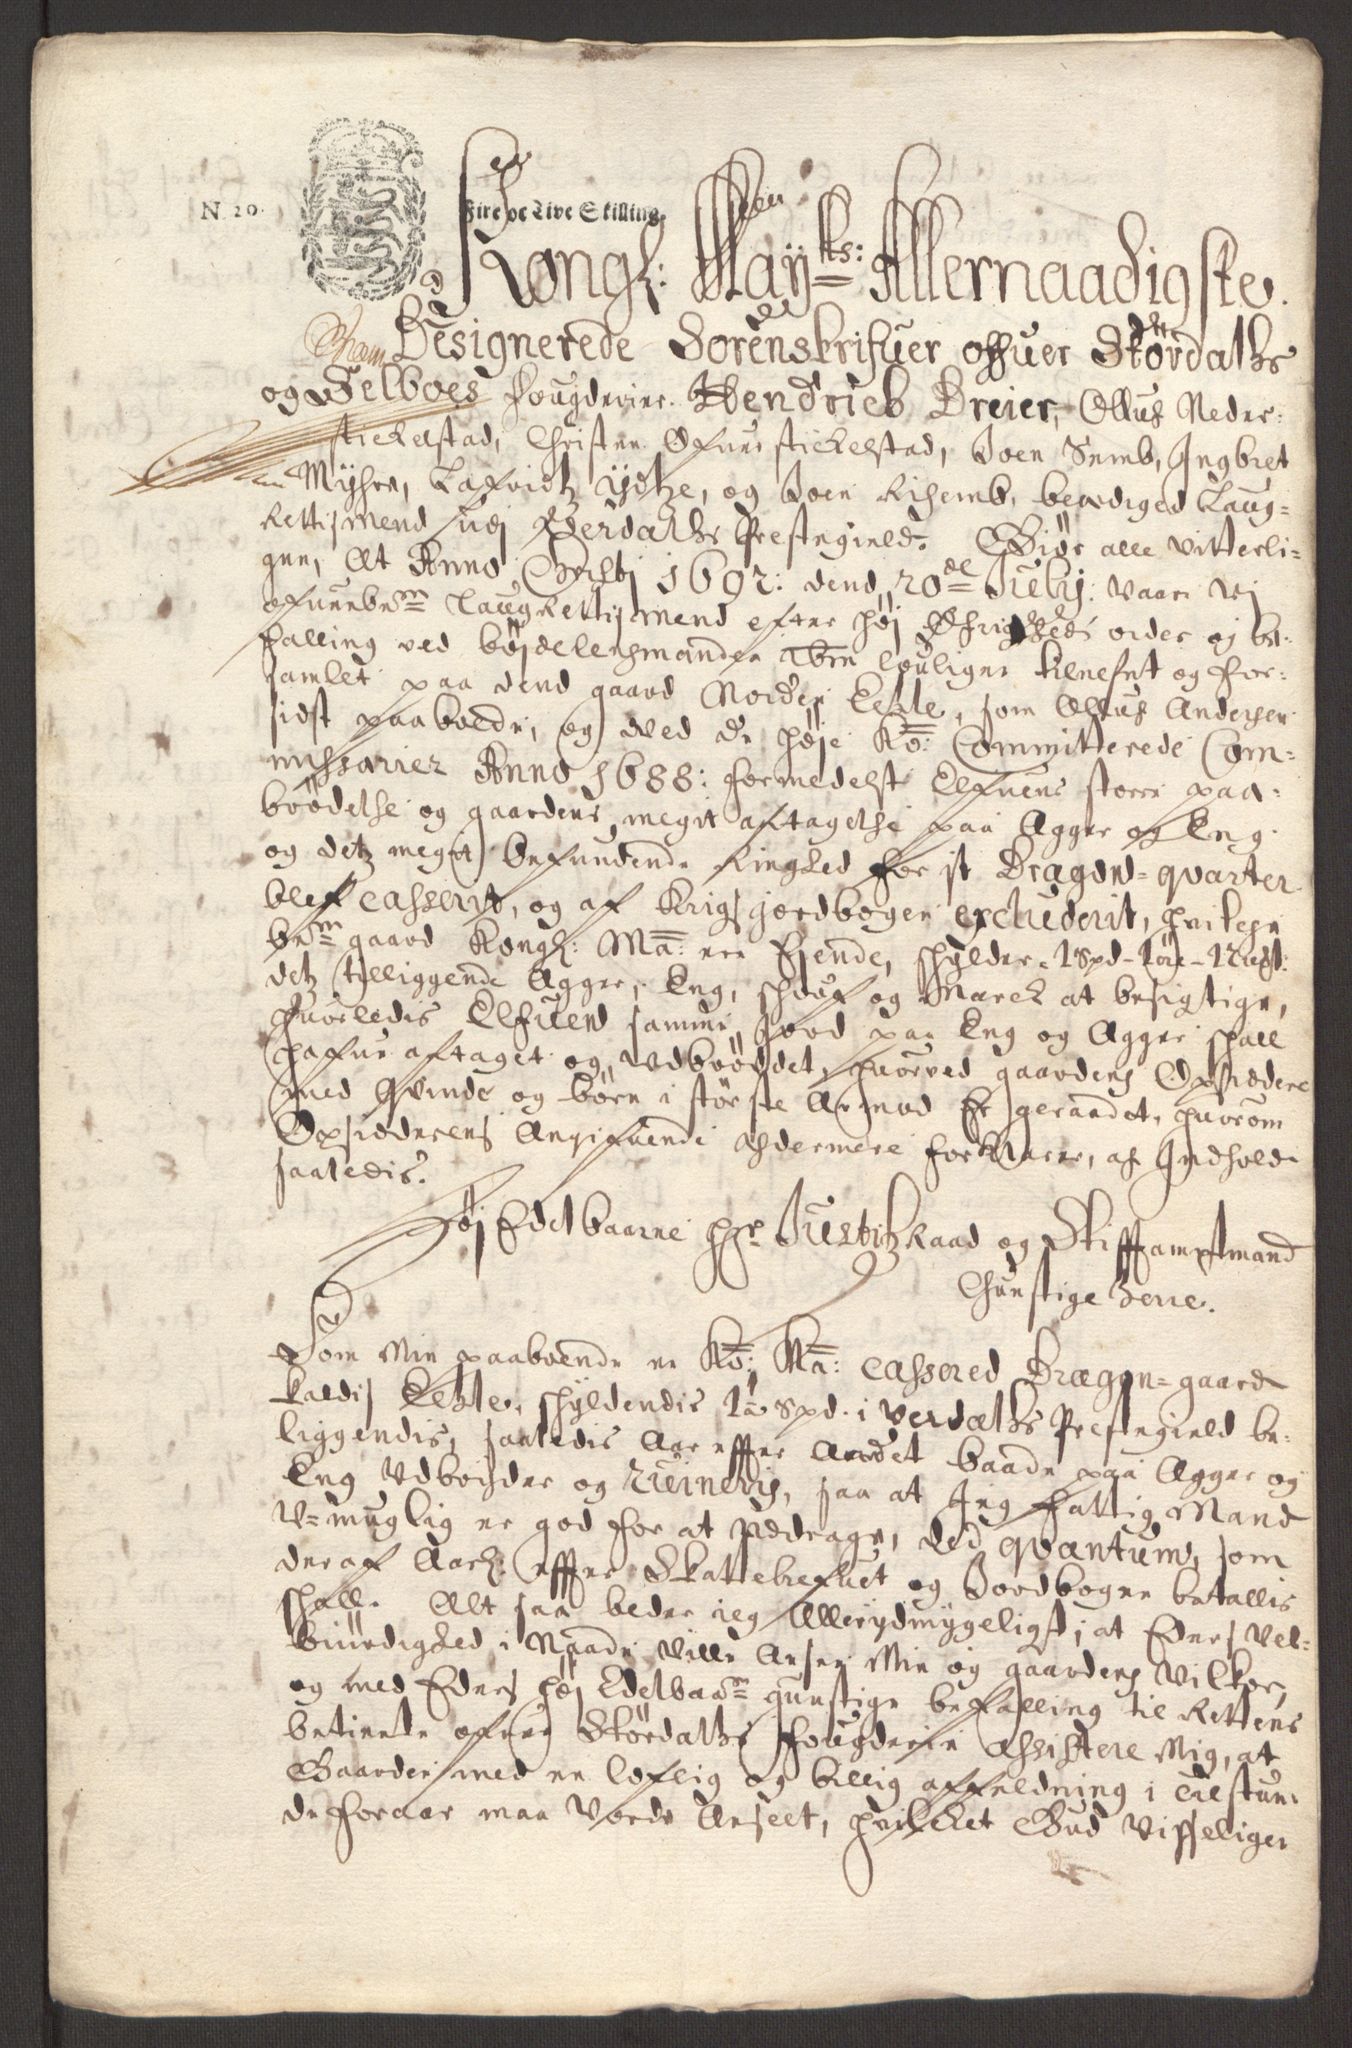 N. 20.
Fire oc Tive Skilling.
Kongl: Mayts: Allernaadigste
Designerede Sorenskrifuer offuer Stördahls
og Selboes fougderier. Hendrich Dreier, Ollus Neder-
stickelstad, Christen Ofuerstickelstad, Joen Semb, Ingbret
Myhre, Lafridtz Ydtze, og Joen Risemb, beædiged Laug-
Rettismend udj Værdahls Prestegield. Giör alle vitterli-
gen, At Anno Christj 1692: dend 20de July: vaar vj
ofuenbem.te Laug Rettismend efter höj Öfrighedz order og be-
falling ved böjdelensmanden louligen tilnefnt og for-
samlet paa dend gaard Norder Eckle, som Ollus Andersen
sidst paaboede, og ved de höje Ko: Committerede Com-
missarier Anno 1688: formedelst Elfuens store paa-
brödelse og gaardens megit aftagelse paa Agger og Eng
og detz meget befundende Ringhed for it Dragon-qvarter
blef casserit, og af Krigs jordbogen excluderit, hvilchen
bem.te gaard Kongl: Ma: er Ejende, schylder 1 Spd - 1 öre -
detz tilliggende Agger, Eng, schouf og Marck at besigtige,
huorledis Elfuen samme jord paa Eng og Agger schall
hafue aftaget og udbröddet, huorved gaardens Opsiddere
med qvinde og börn i störste Armod Er geraadet, huorom
Opsidderens Angifuende ydermere forklarer, af Indhold
saaledis.
Höj Edelbaarne her Justitz Raad og Stifftamptmand
Gunstige Herre.
Som Min paaboende er Ko: Ma: cassered Dragon-gaard
kaldis Eckle, schyldendis 1 Spd. i Verdahls Prestegield be-
liggendis, saaledis Aar effter Andet baade paa Agger og
Eng Udbryder og Ruineris, saa at Jeg fattig Mand
U-muglig er god for at uddrage, ded qvantum, som
deraf Aarl: effter Skattebrefuet og Jordbogen betallis
schall. Alt saa beder jeg Allerydmygeligst, at Eders Vel-
biurdighed i Naade ville Ansee Min og gaardens Vilkor,
og med Eders höj Edelbaarne gunstige befalling til Rettens
betiente ofuer Stördahls fougderie assistere Mig, at
Gaarden med en loflig og billig affeldning i tilstun-
de foraar maa Vorde Anseet, hvilchet Gud Visseligen